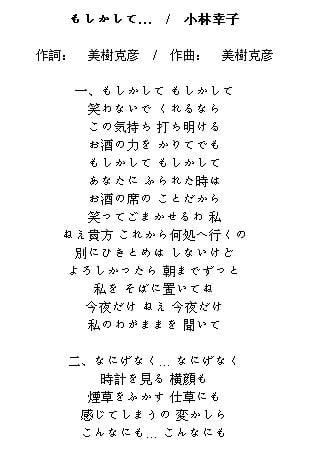 もしかして… / 小林幸子
作詞： 美樹克彦 / 作曲： 美樹克彦
一、もしかして もしかして
笑わないで くれるなら
この気持ち 打ち明ける
お酒の力を かりてでも
もしかして もしかして
あなたに ふられた時は
お酒の席の ことだから
笑ってごまかせるわ 私
ねえ貴方 これから何処へ行くの
別にひきとめは しないけど
よろしかったら 朝までずっと
私を そばに置いてね
今夜だけ ねえ 今夜だけ
私のわがままを 聞いて
二、なにげなく… なにげなく
時計を見る 横顔も
煙草をふかす 仕草にも
感じてしまうの 変かしら
こんなにも… こんなにも